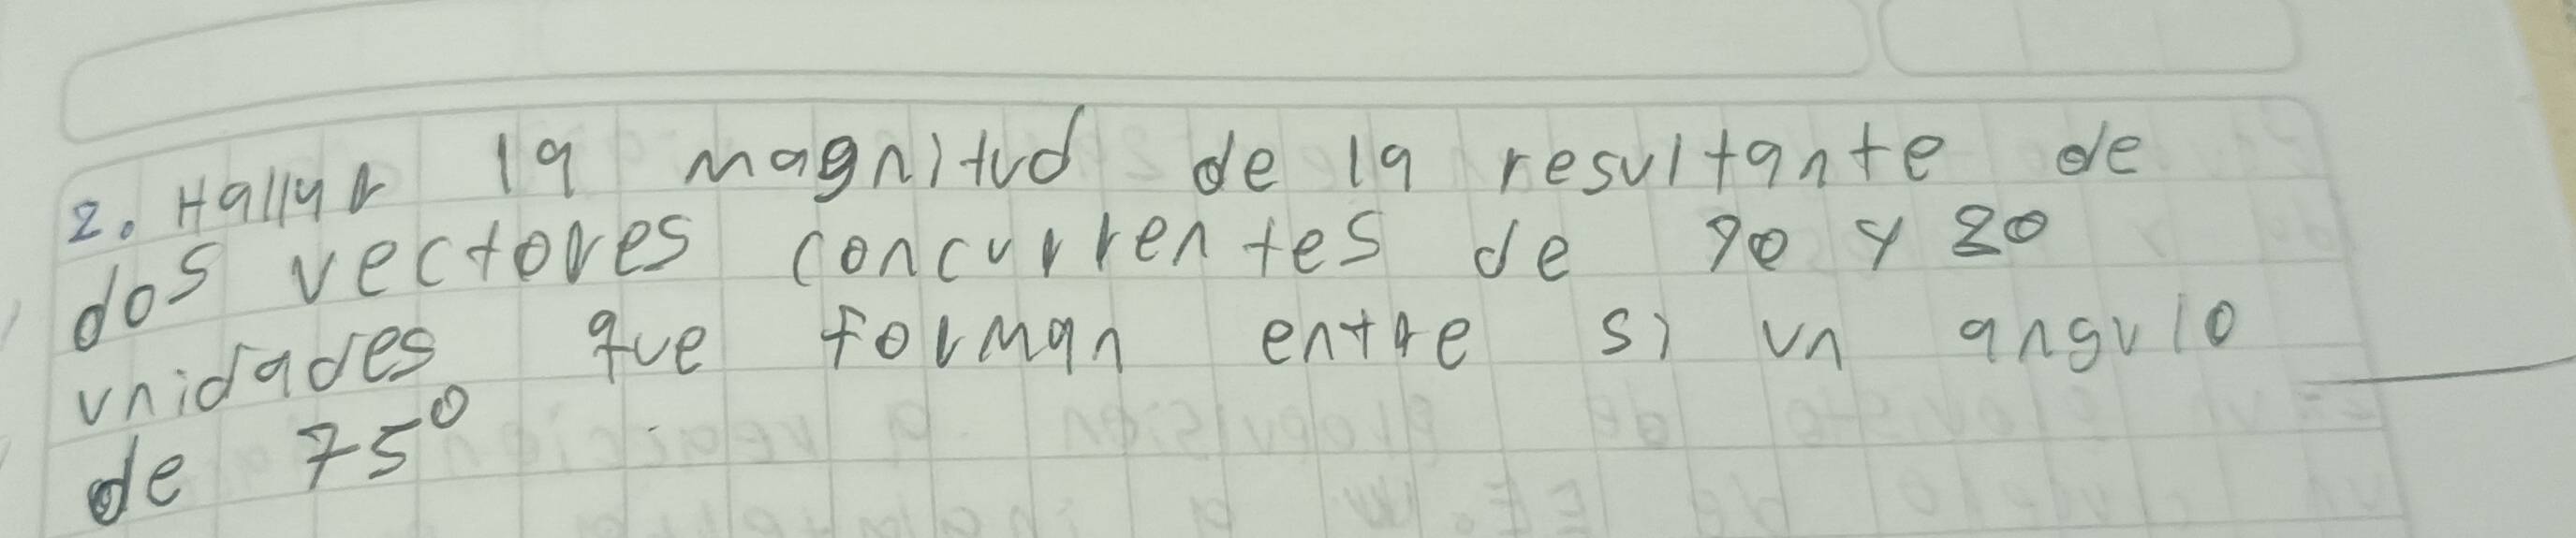 2. Hallar la magnitud de la resultante de
dos vectores concurrentes de 90 y 80
unidades que forman entre si un angulo
de 75°